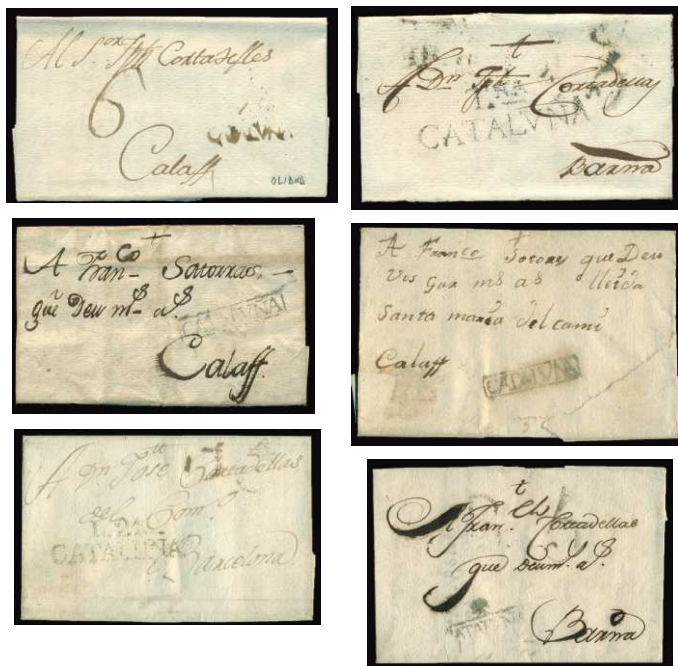 Al Sor. Jph Cortadellas
6
CATALVNA
Calaff
†
A Dn. Jph. Cortadellas
CATALVNA
Barna
†
A Franco Satorras,
que Deu ms. as.
CATALVÑA
Calaff.
†
A Franco Satorras que Deu
Gar ms as lleida
Santa maria del cami
Calaff
CATALVÑA
A Dn Jose Cortadellas
del Com.
CATALUÑA
Barcelona
†
A Fran. Cortadellas
que Deu m. as.
CATALVÑA
Barna